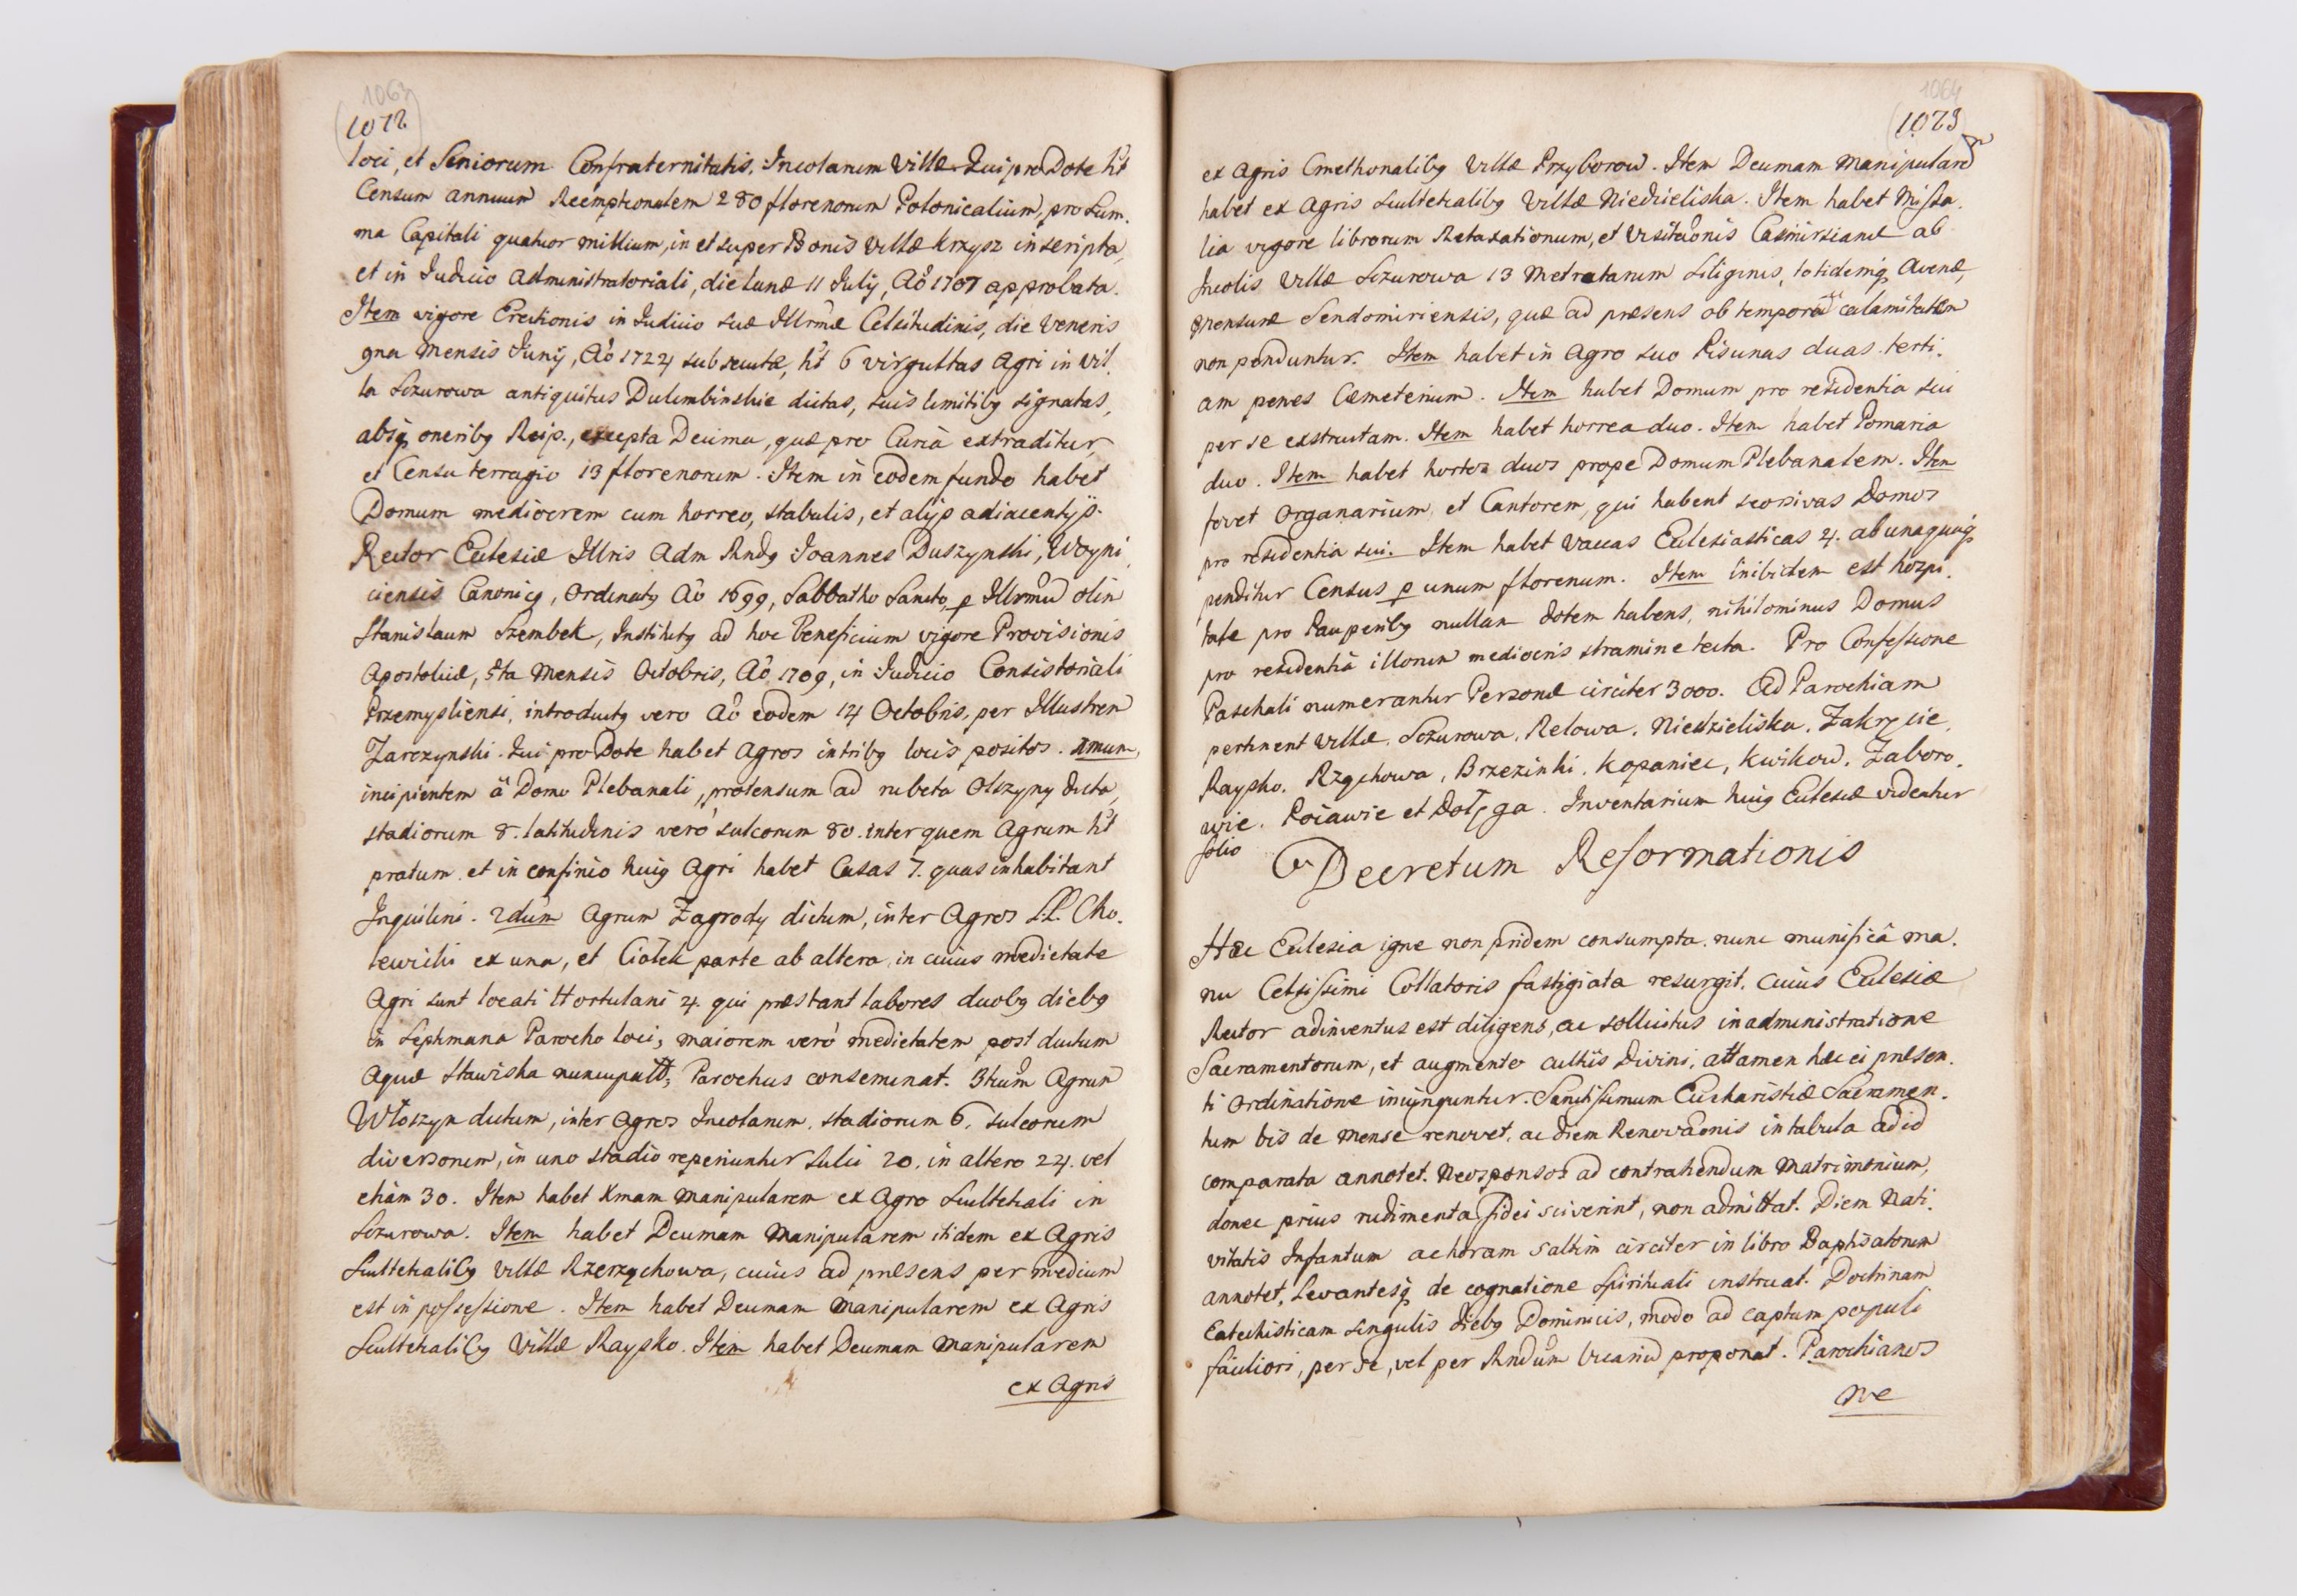 1063
1072
loci, et Seniorum Confraternitatis, Incolarum Villæ. Qui pro Dote ht
Censum annuum Reemptionalem 280 florenorum Polonicalium, pro Sum.
ma Capitali quatuor millium, in et super Bonis Villæ Krzysz inscripta,
et in Judicio Administratoriali, die lunæ 11 July, Aȏ 1707 approbata.
Item vigore Erectionis in Judicio suæ Illrmæ Celsitudinis, die Veneris
gna Mensis Juny, Aȏ 1724 subsecutæ, ht 6 virgultas Agri in Vil.
la Szzurowa antiquitus Dulembinskie dictas, suis limitibg signatas,
absq oneribg Reip., excepta Decima, quæ pro Curia extraditur,
et Censu terragio 13 florenorum. Item in eodem fundo habet
Domum mediocrem cum horreo, stabulis, et alijs adiacentijs.
Rector Eclesiæ Illris Adm Rndg Joannes Duszynski, Woyni.
ciensis Canonicg, Ordinatg Aȏ 1699, Sabbatho Sancto, p Illrmū olim
Stanislaum Szembek, Institutg ad hoc Beneficium vigore Provisionis
Apostolicæ, 5ta Mensis Octobris, Aȏ 1709, in Judicio Consistoriali
Przemysliensi, introductg vero Aȏ eodem 14 Octobris, per Illustrem
Zarczynski. Qui pro Dote habet Agros in tribg locis positos. Imum,
incipientem â Domo Plebanali, protensum ad rubeta Olszyny dicta,
stadiorum 8. latitudinis veró sulcorum 80. inter quem Agrum ht
pratum et in confinio huig Agri habet Casas 7. quas inhabitant
Inquilini. 2dum Agrum Zagrody dictum, inter Agros S.S. Cho.
lewicki ex una, et Ciołek parte ab altera, in cuius medietate
Agri sunt locati Hortulani 4. qui præstant labores duobg diebg
in Septimana Parocho loci; maiorem veró medietatem post ductum
Aquæ Stawiska nuncupatæ, Parochus conseminat. 3tium Agrum
Włoszyn dictum, inter Agros Incolarum, stadiorum 6, sulcorum
diversorum, in uno stadio reperiuntur Sulci 20. in altero 24. vel
etiam 30. Item habet Xmam Manipularem ex Agro Scultetiali in
Szzurowa. Item habet Decimam Manipularem itidem ex Agris
Scultetialibg Villæ Rzerzychowa, cuius ad præsens per medium
est in possessione. Item habet Decimam Manipularem ex Agris
Scultetialibg Villæ Raysko. Item habet Decimam Manipularem
ex Agris
1064
1073
ex Agris Cmethonalibg Villæ Przyborow. Item Decimam Manipularem
habet ex Agris Scultetialibg Villæ Niedzieliska. Item habet Missa.
lia vigore librorum Retaxationum, et Visitaōnis Casimirsianæ ab
Incolis Villæ Szzurowa 13 Metretarum Siliginis, totidemq Avenæ,
Mensuræ Sendomiriensis, quæ ad præsens ob temporū calamitatem
non penduntur. Item habet in Agro suo Pisunas duas. terti.
am penes Cæmeterium. Item habet Domum pro residentia sui
per se exstructam. Item habet horrea duo. Item habet Pomaria
duo. Item habet hortos duos prope Domum Plebanalem. Item
fovet Organarium et Cantorem, qui habent seorsivas Domos
pro residentia sui. Item habet Vaccas Eclesiasticas 4. ab unaquaq
penditur Census p unum florenum. Item inibidem est hospi.
tale pro Pauperibg nullam dotem habens, nihilominus Domus
pro residentiâ illorum mediocris stramine tecta. Pro Confessione
Paschali numerantur Personæ circiter 3000. Ad Parochiam
pertinent Villæ, Szzurowa, Relowa, Niedzieliska, Zakrzcie,
Raysko, Rzychowa, Brzezinki, Kopaniec, Kwikow, Zaboro.
wie, Poiawie et Dołęga. Inventarium huig Eclesiæ videatur
folio
Decretum Reformationis
Hæc Eclesia igne non pridem consumpta, nunc munificâ ma.
nu Celsissimi Collatoris fastigiata resurgit, cuius Eclesiæ
Rector adinventus est diligens, ac sollicitus in administratione
Sacramentorum, et augmento cultûs Divini, attamen hæc ei præsen.
ti Ordinatione iniunguntur. Sanctissimum Eucharistiæ Sacramen.
tum bis de Mense renovet, ac diem Renovaōnis in tabula ad id
comparata annotet. Neosponsos ad contrahendum Matrimonium,
donec prius rudimenta fidei sciverint, non admittat. Diem Nati.
vitatis Infantum ac horam saltim circiter in libro Baptisatorum
annotet, Levantesq de cognatione Spirituali instruat. Doctrinam
Catechisticam singulis diebg Dominicis, modo ad captum populi
faciliori, per se, vel per Rndum Vicariū proponat. Parochianos
ne